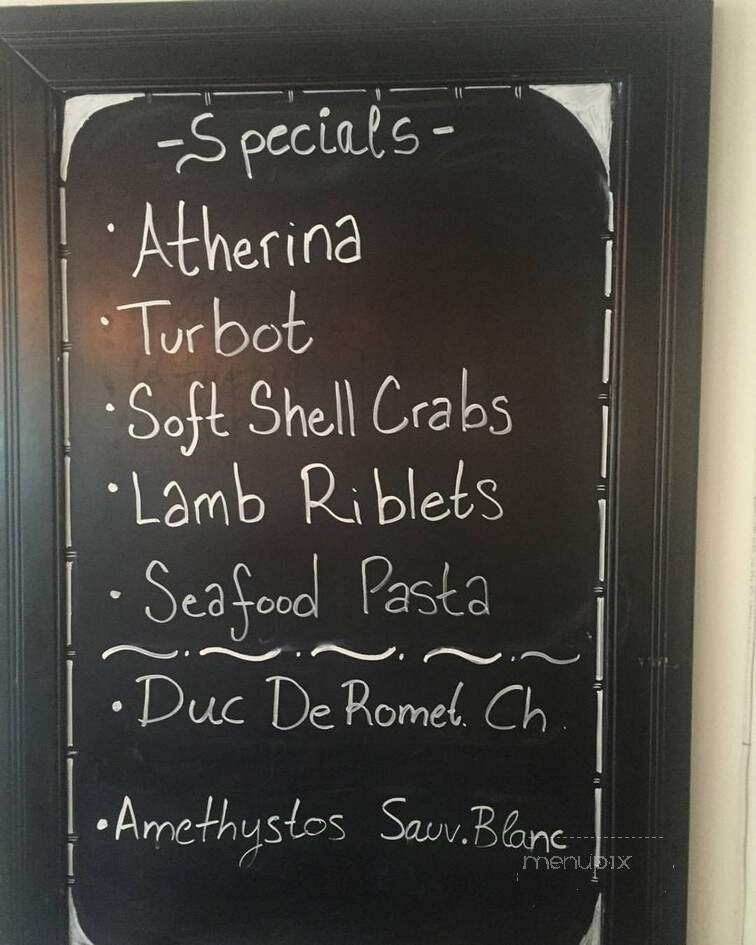 -Specials-
• Atherina
• Turbot
• Soft Shell Crabs
• Lamb Riblets
• Seafood Pasta
• Duc De Romet. Ch.
• Amethystos Sauv. Blanc
menupix